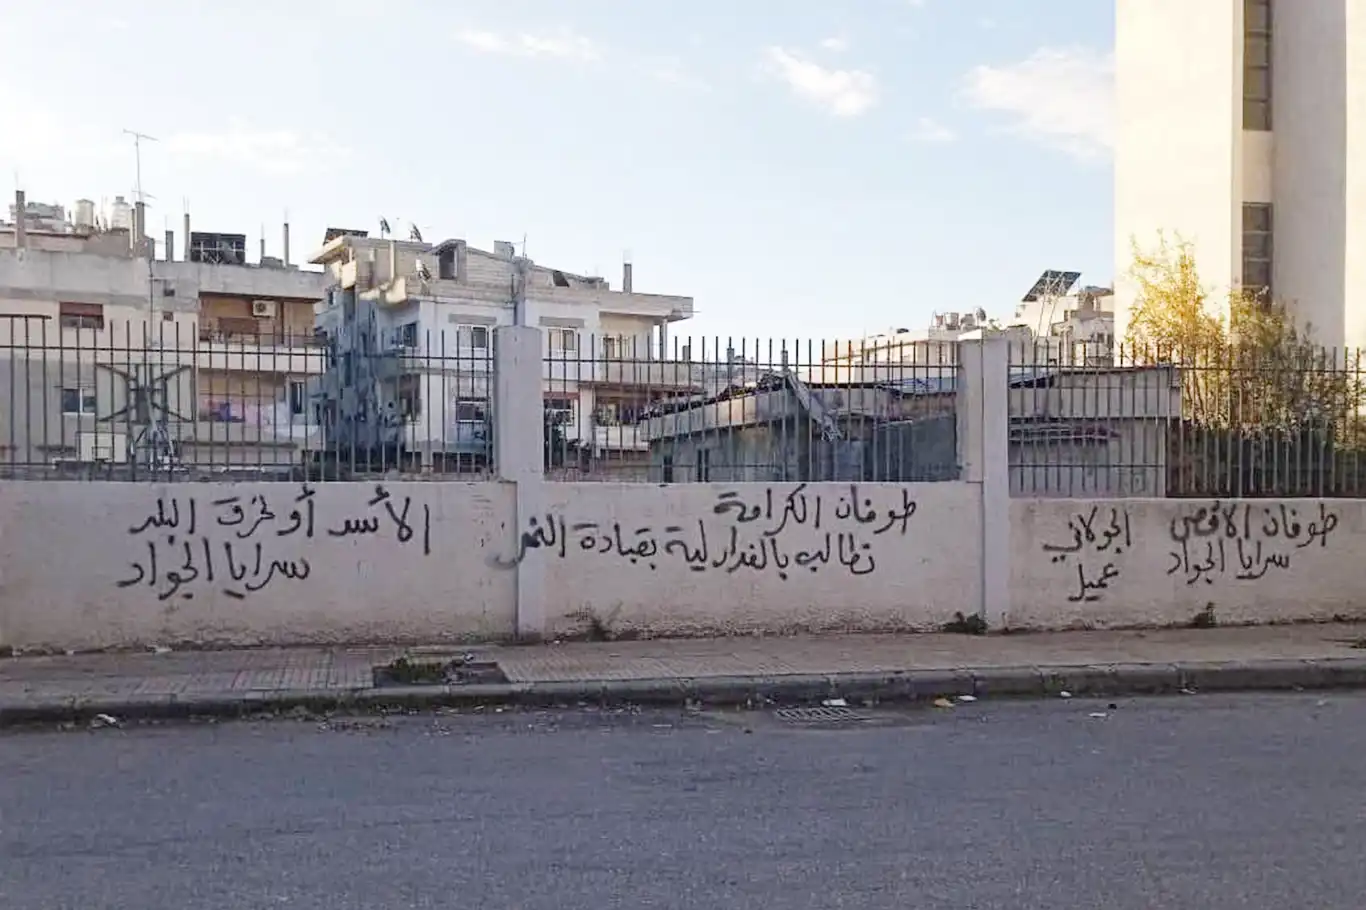 طوفان الاقصى
سرايا الجواد
الجولاني
عميل
طوفان الكرامة
تطالب بالفدارلية بقيادة النمر
الأسد أو نحرق البلد
سرايا الجواد